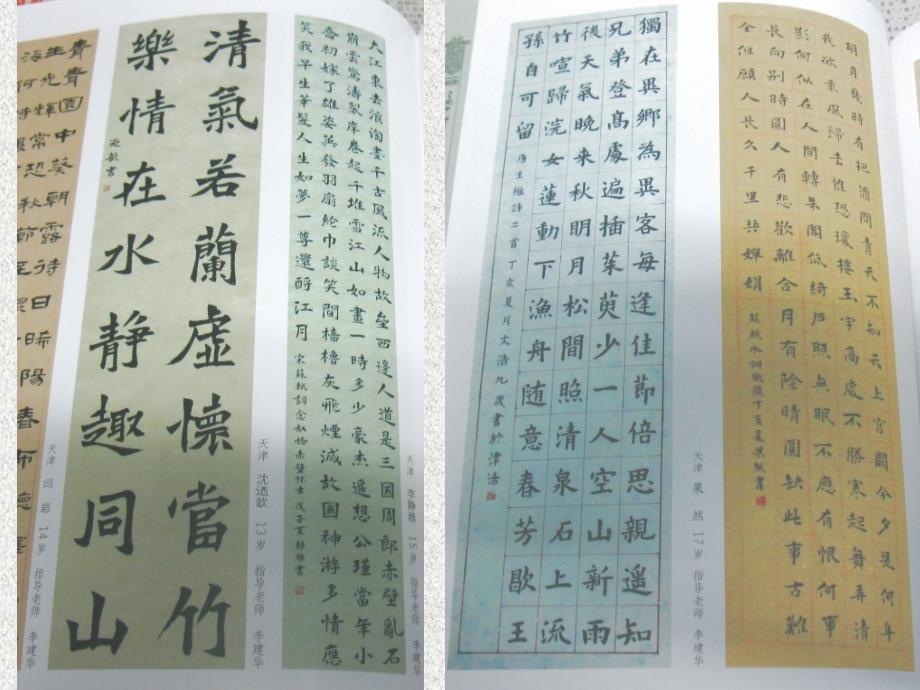 青青園中葵朝露待日晞陽春布德
生光輝常恐秋節至
海何時
天津 闫岩 14岁 指导老师 李建华
清氣若蘭虛懷當竹
樂情在水靜趣同山
天津 沈迺歌 13岁 指导老师 李建华
大江東去浪淘盡千古風流人物故壘西邊人道是三國周郎赤壁亂石
崩雲驚濤裂岸卷起千堆雪江山如畫一時多少豪杰遥想公瑾當年小
喬初嫁了雄姿英發羽扇綸巾談笑間檣櫓灰飛煙滅故國神游多情應
笑我早生華髮人生如夢一尊還酹江月 宋蘇軾詞念奴嬌赤壁怀古 戊子夏靜雅書
天津 李静雅 15岁 指导老师 李建华
獨在異鄉為異客每逢佳節倍思親遥知
兄弟登高處遍插茱萸少一人空山新雨
後天氣晚来秋明月松間照清泉石上流
竹喧歸浣女蓮動下漁舟随意春芳歇王
孫自可留 唐王維詩二首丁亥夏月文浩九歲書於津沽
天津 果然 17岁 指导老师 李建华
明月幾時有把酒問青天不知天上宫闕今夕是何年
我欲乘風歸去惟恐瓊樓玉宇高處不勝寒起舞弄清
影何似在人間轉朱閣低綺户照無眠不應有恨何事
長向别時圓人有悲歡離合月有陰晴圓缺此事古難
全但願人長久千里共嬋娟